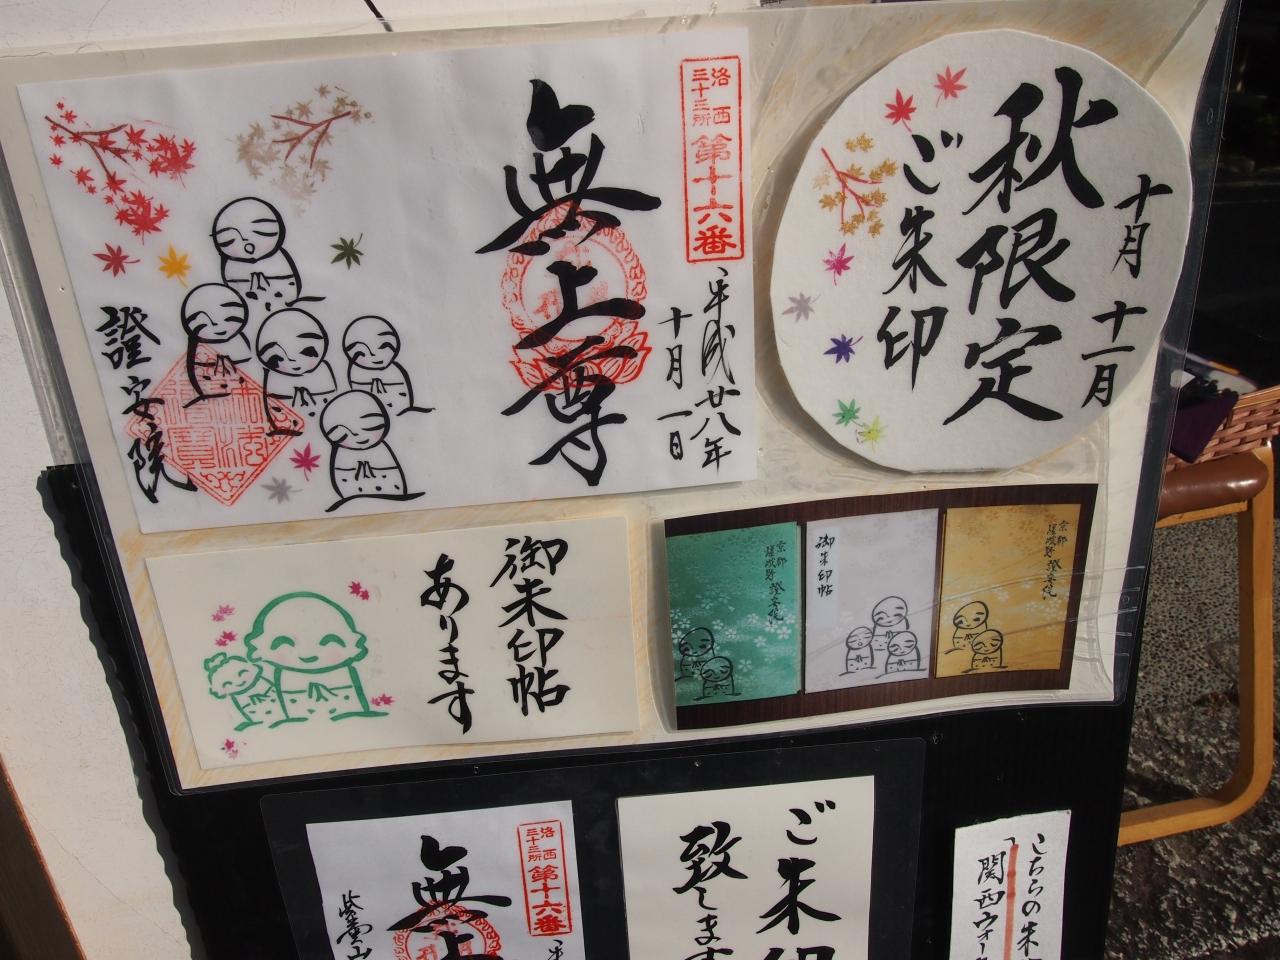 洛西
三十三所
第十六番
平成廿八年
十月一日
無上尊
證安院
十月 十一月
秋限定
ご朱印
御朱印帖
あります
京都
嵯峨野 證安院
御朱印帖
京都
嵯峨野 證安院
洛西
三十三所
第十六番
平
無上
紫雲山
ご朱印
致します
こちらの朱
「関西ウォー